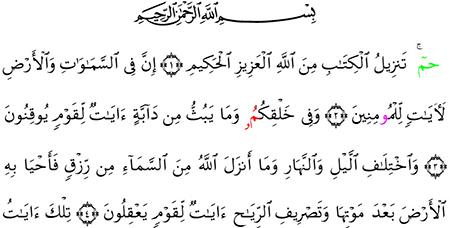 بِسْمِ اللَّهِ الرَّحْمَٰنِ الرَّحِيمِ
حمٓ تَنزِيلُ الْكِتَٰبِ مِنَ اللَّهِ الْعَزِيزِ الْحَكِيمِ ﴿١﴾ إِنَّ فِى السَّمَٰوَاتِ وَالْأَرْضِ
لَأَيَاتٍ لِّلْمُومِنِينَ ﴿٢﴾ وَفِى خَلْقِكُمُۥ وَمَا يَبُثُّ مِن دَآبَّةٍ ءَايَاتٌ لِّقَوْمٍ يُوقِنُونَ
﴿٣﴾ وَاخْتِلَٰفِ الَّيْلِ وَالنَّهَارِ وَمَا أَنزَلَ اللَّهُ مِنَ السَّمَآءِ مِن رِّزْقٍ فَأَحْيَا بِهِ
الْأَرْضَ بَعْدَ مَوْتِهَا وَتَصْرِيفِ الرِّيَٰحِ ءَايَاتٌ لِّقَوْمٍ يَعْقِلُونَ ﴿٤﴾ تِلْكَ ءَايَاتُ